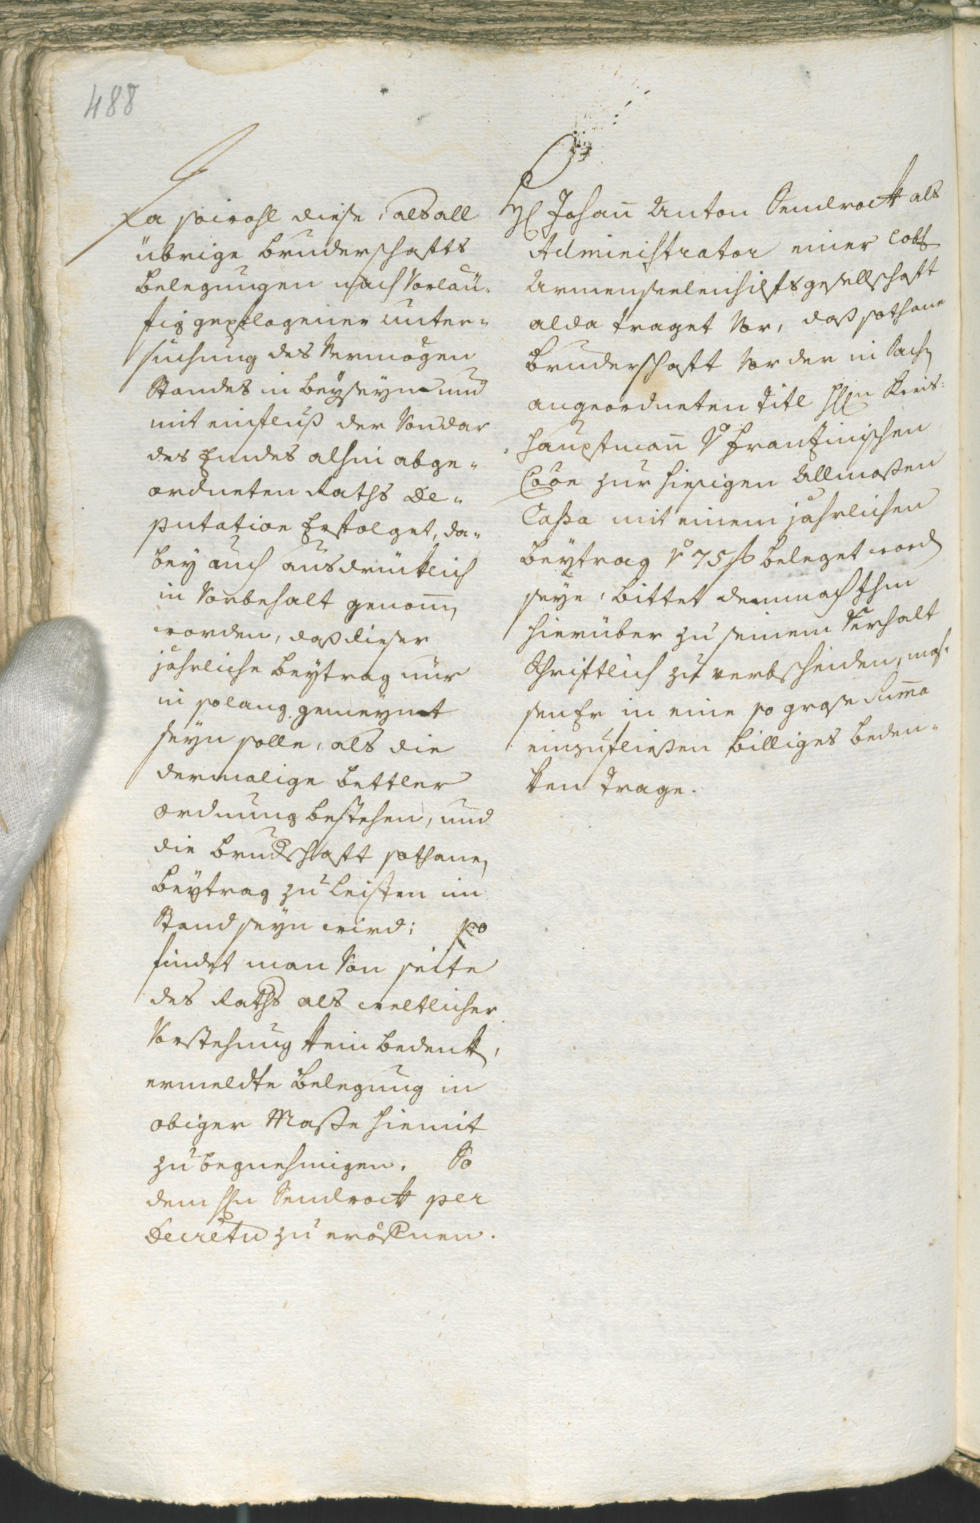 488
Da sowohl diese, als all
übrige bruderschafts
belegungen nach Vorläu-
fig gepflogener unter-
suchung des Vermögen
Standes in beyseyn und
mit einfluß der Von dar
des Endes alhin abge-
ordneten Raths De-
putation Erfolget, da-
bey auch ausdrüklich
in Vorbehalt genom̄en
worden, daß dieser
jährliche beytrag nur
in solang gemeynet
seyn solle, als die
dermalige bettler
ordnung bestehen, und
die brudschaft sothanen
beytrag zu leisten im
Stand seyn wird; so
findet man Von seite
des Raths als weltlicher
Vorstehung kein bedenken,
ermeldte belegung in
obiger Maße hiemit
zu begnehmigen. So
dem Hrn Sendrock per
Decretu zu eröffnen.
H Johan̄ Anton Sendrock als
Administrator einer lobl
Armenseelenhilfsgesellschaft
alda traget Vor, daß sothane
bruderschaft Vor der in Sachen
angeordneten Titl Hrn Kreis-
hauptman̄ V Franzinischen
Coōn zur hiesigen Allmoßen
Cassa mit einem jährlichen
beytrag V 75 f beleget worden
seye, bittet demnach Ihm
hierüber zu seinem Verhalt
Schriftlich zu verbscheiden, mas-
sen Er in eine so große Sum̄a
einzufließen billiges beden-
ken trage.